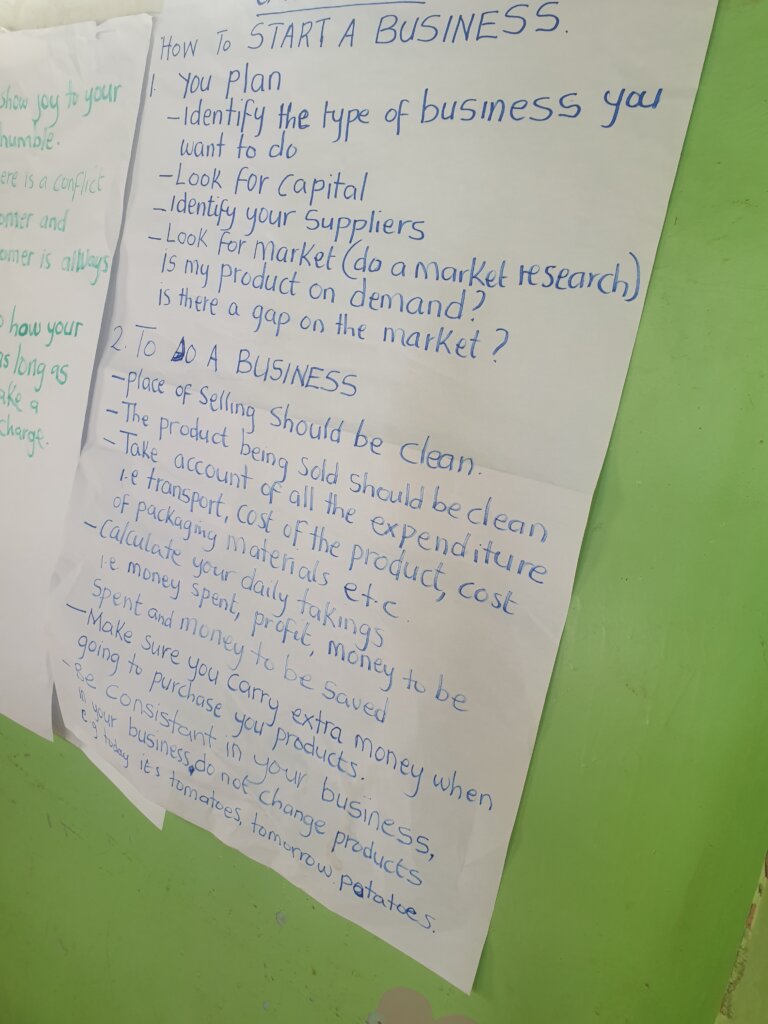 show joy to your
humble.
ere is a conflict
omer and
omer is allways
how your
as long as
ake a
charge.
HOW TO START A BUSINESS.
1. You plan
-Identify the type of business you
want to do
-Look for capital
-Identify your Suppliers
-Look for market (do a market research)
is my product on demand?
is there a gap on the market?
2. TO DO A BUSINESS
-place of selling should be clean.
-The product being sold should be clean
-Take account of all the expenditure
i.e transport, cost of the product, cost
of packaging materials etc.
-Calculate your daily takings
i.e money spent, profit, money to be
spent and money to be saved
-Make sure you carry extra money when
going to purchase you products.
-Be consistant in your business,
in your business, do not change products
e.g today it's tomatoes, tomorrow potatoes.